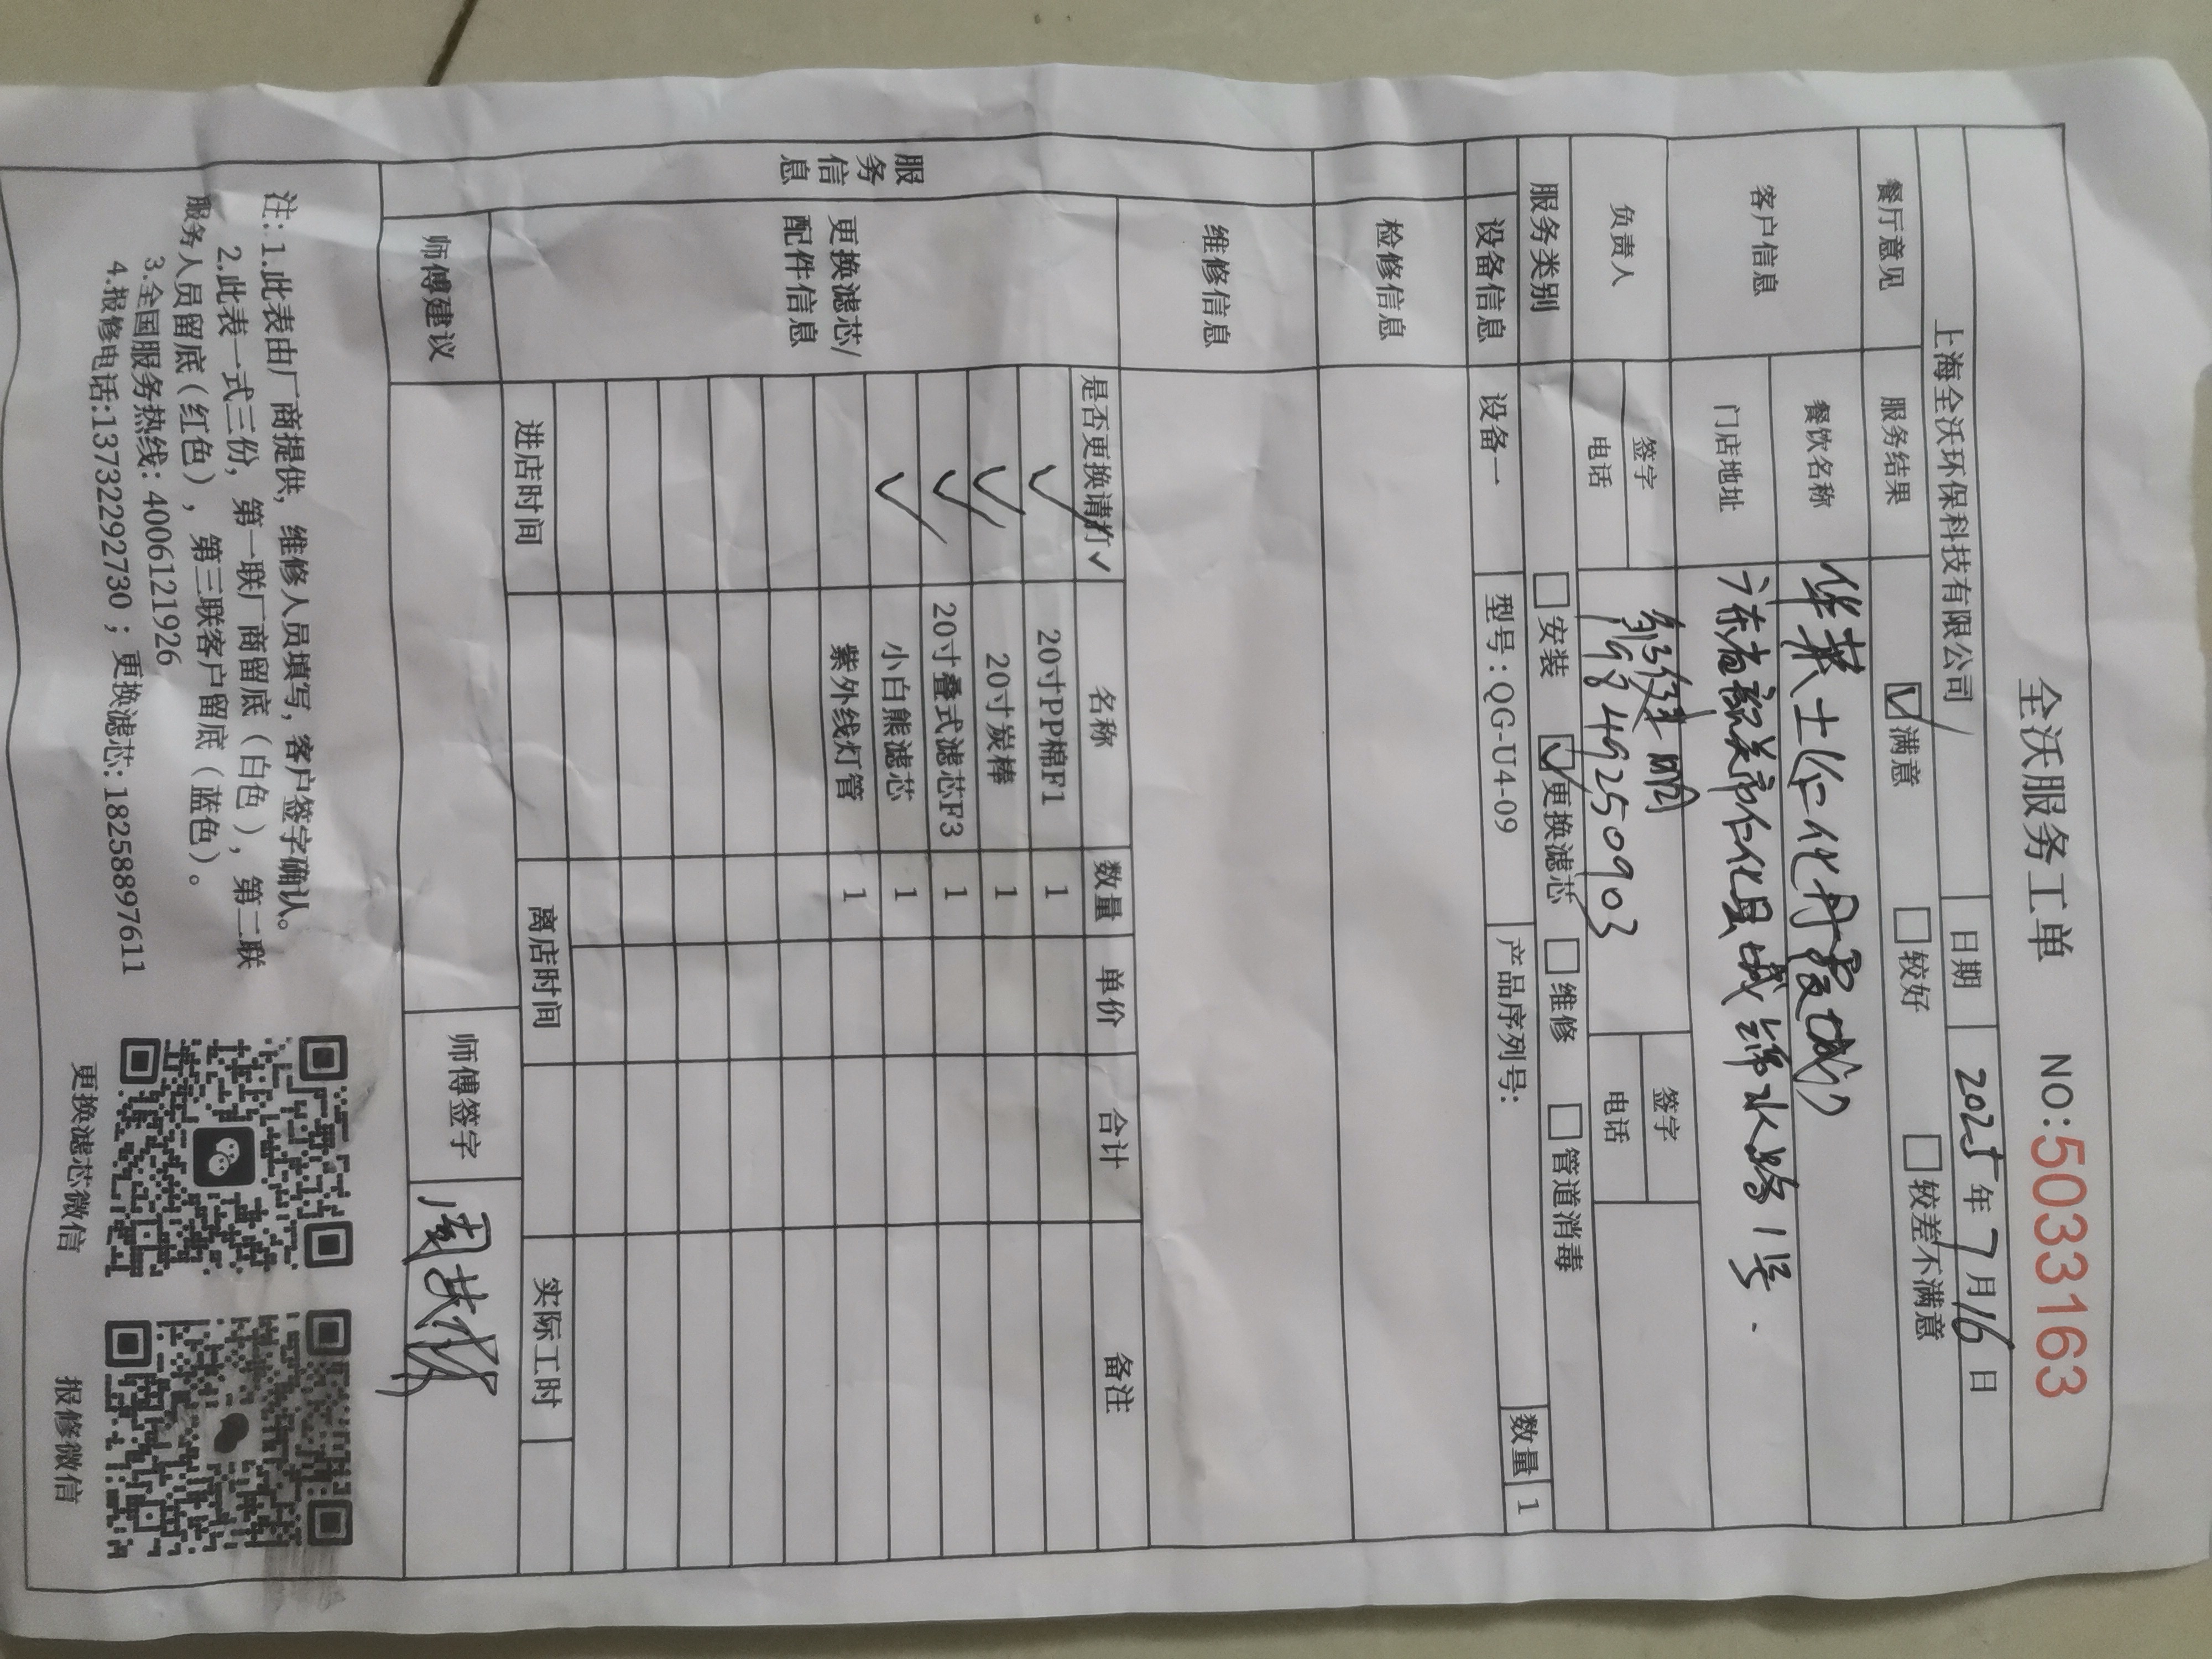 全沃服务工单 NO:5033163
上海全沃环保科技有限公司 日期 2025年7月16日
餐厅意见 服务结果 ☑满意 □较好 □较差不满意
客户信息 餐饮名称 华莱士(仁化丹霞城)
门店地址 广东省韶关市仁化县城锦水路1号.
负责人 签字 签字
电话 19849250903 电话
服务类别 □安装 ☑更换滤芯 □维修 □管道消毒
设备信息 设备一 型号:QG-U4-09 产品序列号: 数量 1
服务信息
检修信息
维修信息
更换滤芯/配件信息
是否更换请打✓ 名称 数量 单价 合计 备注
✓ 20寸PP棉F1 1
✓ 20寸炭棒 1
✓ 20寸叠式滤芯F3 1
✓ 小白熊滤芯 1
紫外线灯管 1
进店时间 离店时间 实际工时
师傅建议 师傅签字
注:1.此表由厂商提供,维修人员填写,客户签字确认。
2.此表一式三份,第一联厂商留底(白色),第二联
服务人员留底(红色),第三联客户留底(蓝色)。
3.全国服务热线:4006121926
4.报修电话:13732292730;更换滤芯:18258897611
更换滤芯微信 报修微信